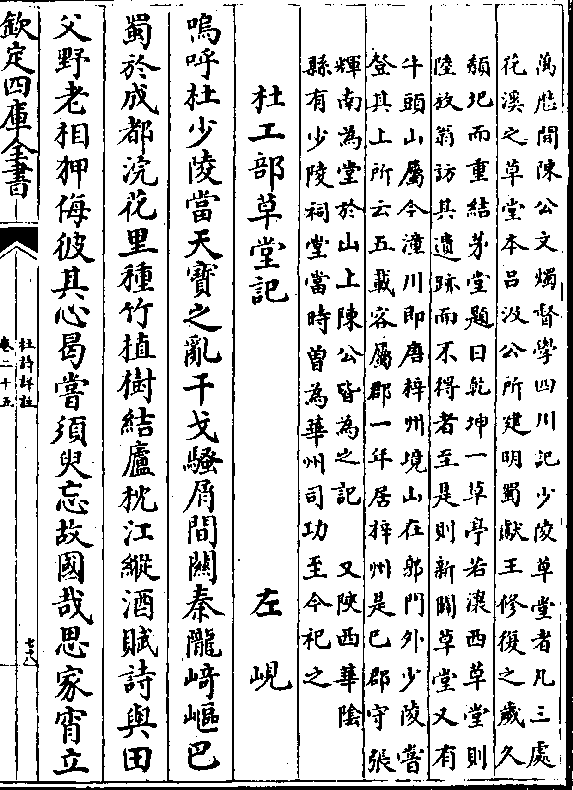 萬厯間陳公文燭督學四川記少陵草堂者凡三處
花溪之草堂本呂汲公所建明蜀獻王修復之歲久
頽圯而重結茅堂題曰乾坤一草亭若瀼西草堂則
陸放翁訪其遺跡而不得者至是則新闢草堂又有
牛頭山屬今潼川即唐梓州境山在郭門外少陵嘗
登其上所云五載客屬郡一年居梓州是巳郡守張
輝南為堂於山上陳公皆為之記　又陜西華隂
縣有少陵祠堂當時曽為華州司功至今祀之
杜工部草堂記　左峴
嗚呼杜少陵當天寳之亂干戈騷屑間闗秦隴﨑嶇巴
蜀於成都浣花里種竹植樹結廬枕江縱酒賦詩與田
父野老相狎侮彼其心曷嘗須臾忘故國哉思家宵立
欽定四庫全書
杜詩詳註
卷二十五
七八